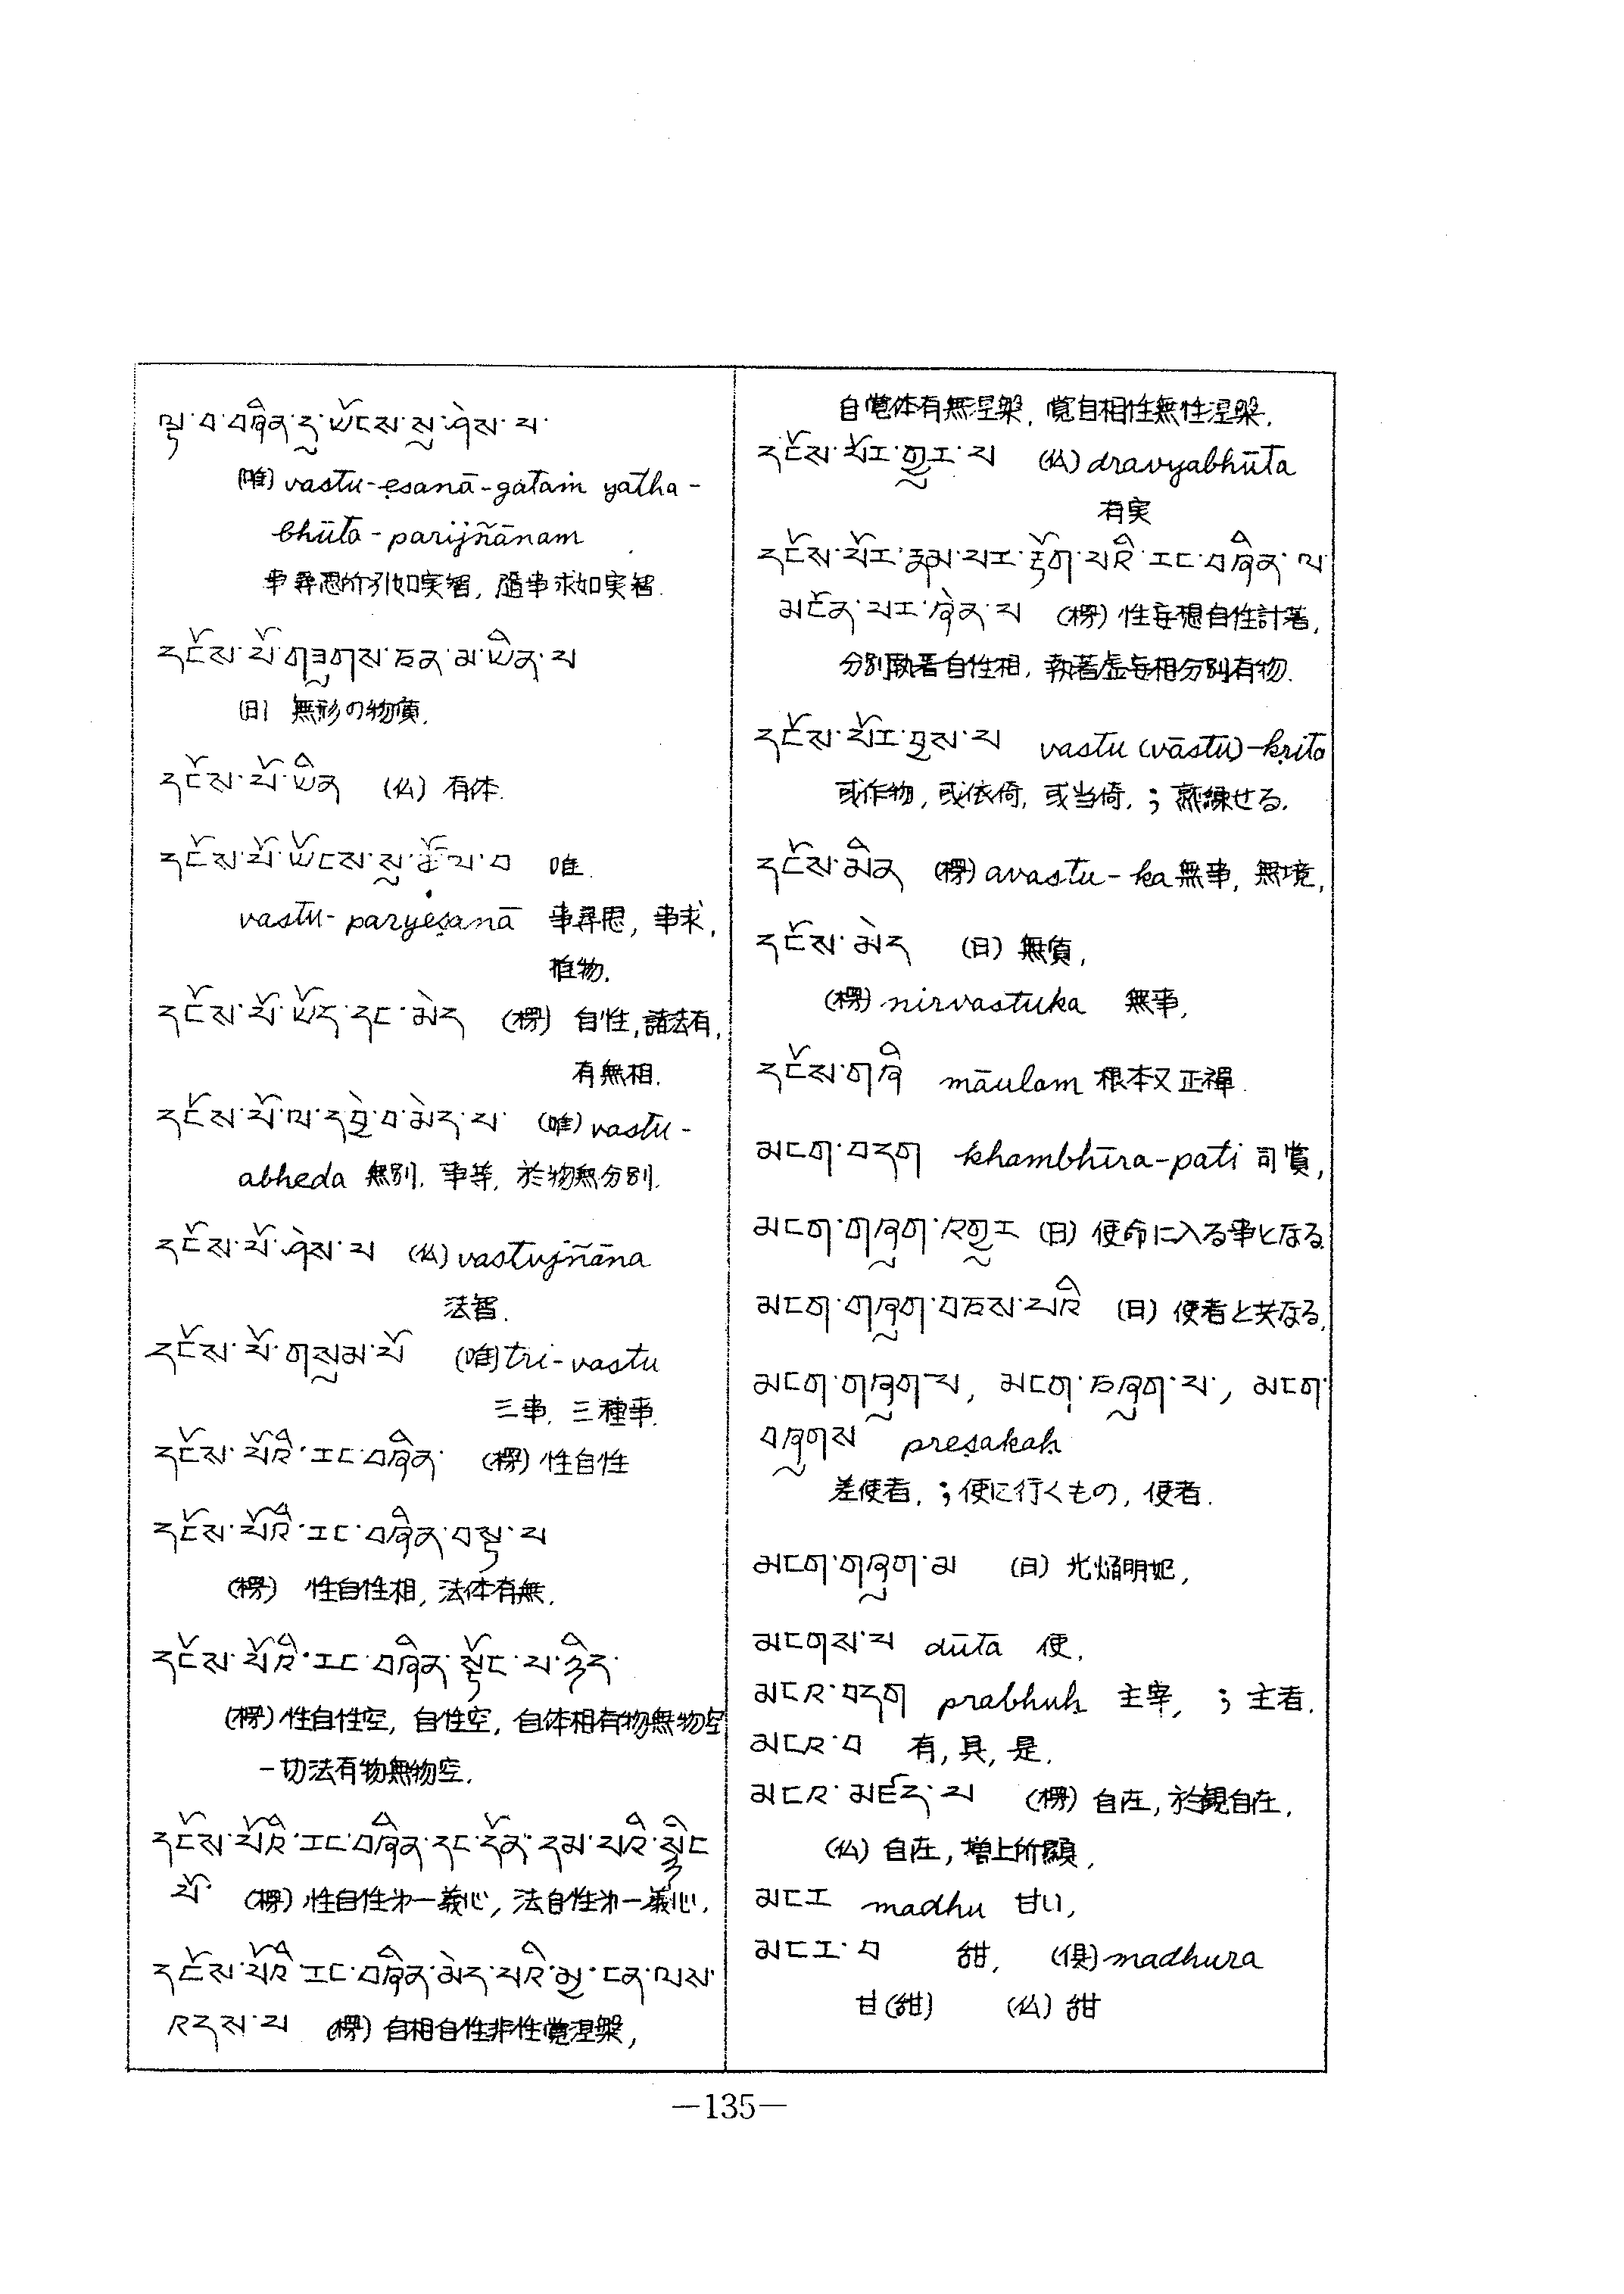 ལྟ་བ་བཞིན་དུ་ཡོངས་སུ་ཤེས་པ་
(唯) vastu-eṣanā-gataṁ yatha-
bhūta-parijñānam
事尋思所引如実智, 隨事求如実智.
དངོས་པོ་གཟུགས་ཅན་མ་ཡིན་པ
(日) 無形の物質.
དངོས་པོ་ཡིན (仏) 有体.
དངོས་པོ་ཡོངས་སུ་ཚོལ་བ 唯.
vastu-paryeṣanā 事尋思, 事求,
推物.
དངོས་པོ་ཡོད་དང་མེད (楞) 自性, 諸法有,
有無相.
དངོས་པོ་ལ་དབྱེ་བ་མེད་པ་ (唯) vastu-
abheda 無別. 事等, 於物無分別.
དངོས་པོ་ཤེས་པ (仏) vastujñāna
法智.
དངོས་པོ་གསུམ་པོ (唯) tri-vastu
三事. 三種事.
དངོས་པོའི་རང་བཞིན་ (楞) 性自性
དངོས་པོའི་རང་བཞིན་བསྟ་པ
(楞) 性自性相, 法体有無.
དངོས་པོའི་རང་བཞིན་སྟོང་པ་ཉིད་
(楞) 性自性空, 自性空, 自体相有物無物空
一切法有物無物空.
དངོས་པོའི་རང་བཞིན་དང་དོན་དམ་པའི་སྙིང
པོ་ (楞) 性自性第一義心, 法自性第一義心.
དངོས་པོའི་རང་བཞིན་མེད་པའི་མྱ་ངན་ལས་
འདས་པ (楞) 自相自性非性覚涅槃,
自覚体有無涅槃, 覚自相性無性涅槃.
དངོས་པོར་གྱུར་པ (仏) dravyabhūta
有実
དངོས་པོར་རྣམ་པར་རྟོག་པའི་རང་བཞིན་ལ་
མངོན་པར་ཞེན་པ (楞) 性妄想自性計著,
分別執著自性相, 執著虚妄相分別有物.
དངོས་པོར་བྱས་པ vastu (vāstu)-kṛita
或作物, 或依倚, 或当倚, ; 熟練せる.
དངོས་མིན (楞) avastu-ka 無事, 無境,
དངོས་མེད (日) 無質,
(楞) nirvastuka 無事,
དངོས་གཞི māulam 根本又正禪.
མངག་བདག khambhīra-pati 司賞,
མངག་གཞུག་འགྱུར (日) 使命に入る事となる
མངག་གཞུག་བཅས་པའི (日) 使者と共なる.
མངག་གཞུག་པ, མངག་ཅཞུག་པ་, མངག་
བཞུགས preṣakaḥ
差使者, ; 使に行くもの, 使者.
མངག་གཞུག་མ (日) 光焔明妃,
མངགས་པ dūta 使,
མངའ་བདག prabhuḥ 主宰, ; 主者.
མངའ་བ 有, 具, 是.
མངའ་མཛད་པ (楞) 自在, 於観自在,
(仏) 自在, 増上所顕,
མངར madhu 甘い,
མངར་བ 甜, (倶) madhura
甘(甜) (仏) 甜
—135—